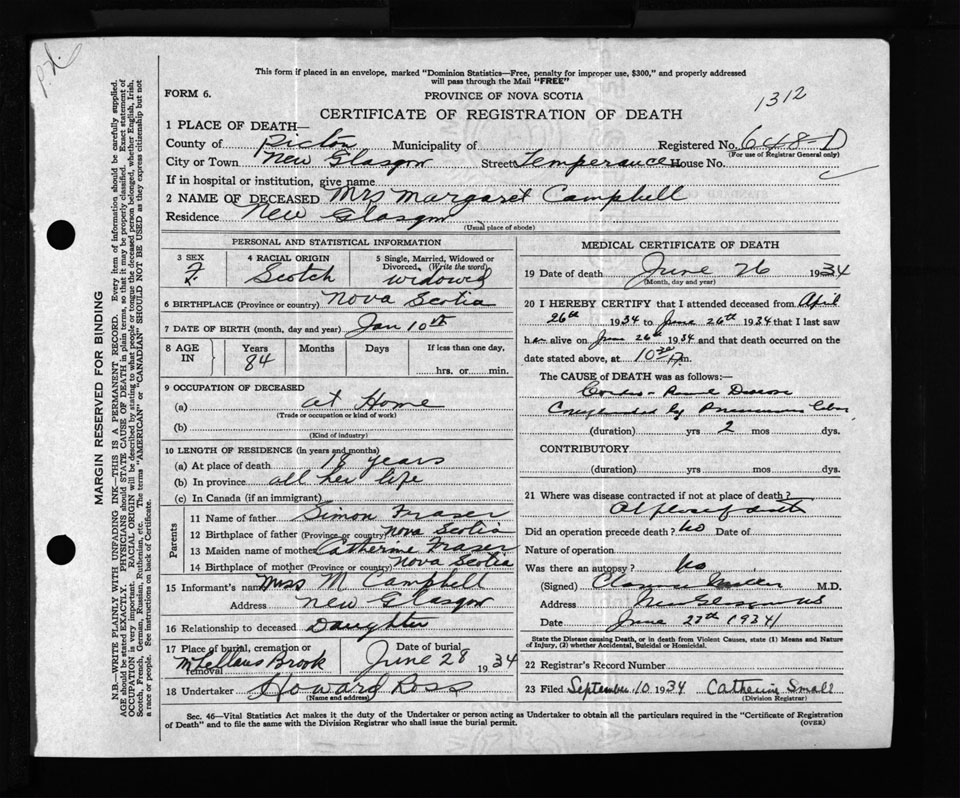 This form if placed in an envelope, marked "Dominion Statistics—Free, penalty for improper use, $300," and properly addressed
will pass through the Mail "FREE"
FORM 6.
PROVINCE OF NOVA SCOTIA
1312
CERTIFICATE OF REGISTRATION OF DEATH
1 PLACE OF DEATH—
County of Pictou Municipality of Registered No. 648-D
(For use of Registrar General only)
City or Town New Glasgow Street Temperance House No.
If in hospital or institution, give name
2 NAME OF DECEASED Mrs Margaret Campbell
Residence New Glasgow
(Usual place of abode)
PERSONAL AND STATISTICAL INFORMATION
3 SEX F
4 RACIAL ORIGIN Scotch
5 Single, Married, Widowed or Divorced, (Write the word) Widowed
6 BIRTHPLACE (Province or country) Nova Scotia
7 DATE OF BIRTH (month, day and year) Jan 10th
8 AGE IN Years 84 Months Days If less than one day, hrs. or min.
9 OCCUPATION OF DECEASED
(a) at Home
(Trade or occupation or kind of work)
(b)
(Kind of industry)
10 LENGTH OF RESIDENCE (in years and months)
(a) At place of death 18 years
(b) In province all her life
(c) In Canada (if an immigrant)
Parents
11 Name of father Simon Fraser
12 Birthplace of father (Province or country) Nova Scotia
13 Maiden name of mother Catherine Fraser
14 Birthplace of mother (Province or country) Nova Scotia
15 Informant's name Miss M Campbell
Address New Glasgow
16 Relationship to deceased Daughter
17 Place of burial, cremation or removal McLellans Brook
Date of burial June 28 1934
18 Undertaker Howard Ross
(Name and address)
MEDICAL CERTIFICATE OF DEATH
19 Date of death June 26 1934
(Month, day and year)
20 I HEREBY CERTIFY that I attended deceased from April
26th 1934 to June 26th 1934 that I last saw
her alive on June 26th 1934 and that death occurred on the
date stated above, at 10 30 m.
The CAUSE of DEATH was as follows:—
Cardio-Renal Disease
by
(duration) yrs 2 mos dys.
CONTRIBUTORY
(duration) yrs mos dys.
21 Where was disease contracted if not at place of death?
At place of death
Did an operation precede death? No Date of
Nature of operation
Was there an autopsy? No
(Signed) Clarence Miller M.D.
Address New Glasgow NS
Date June 27th 1934
State the Disease causing Death, or in death from Violent Causes, state (1) Means and Nature
of Injury, (2) whether Accidental, Suicidal or Homicidal.
22 Registrar's Record Number
23 Filed September 10 1934 Catherine Small
(Division Registrar)
Sec. 46—Vital Statistics Act makes it the duty of the Undertaker or person acting as Undertaker to obtain all the particulars required in the "Certificate of Registration
of Death" and to file the same with the Division Registrar who shall issue the burial permit.
(OVER)
MARGIN RESERVED FOR BINDING
N.B.—WRITE PLAINLY WITH UNFADING INK—THIS IS A PERMANENT RECORD. Every item of information should be carefully supplied.
AGE should be stated EXACTLY. PHYSICIANS should STATE CAUSE OF DEATH in plain terms, so that it may be properly classified. Exact statement of
OCCUPATION is very important. RACIAL ORIGIN will be described by stating to what people or tongue the deceased person belonged, whether English, Irish,
Scotch, French, German, Russian, Ruthenian, etc. The terms "AMERICAN" or "CANADIAN" SHOULD NOT BE USED as they express citizenship but not
a race or people. See instructions on back of Certificate.